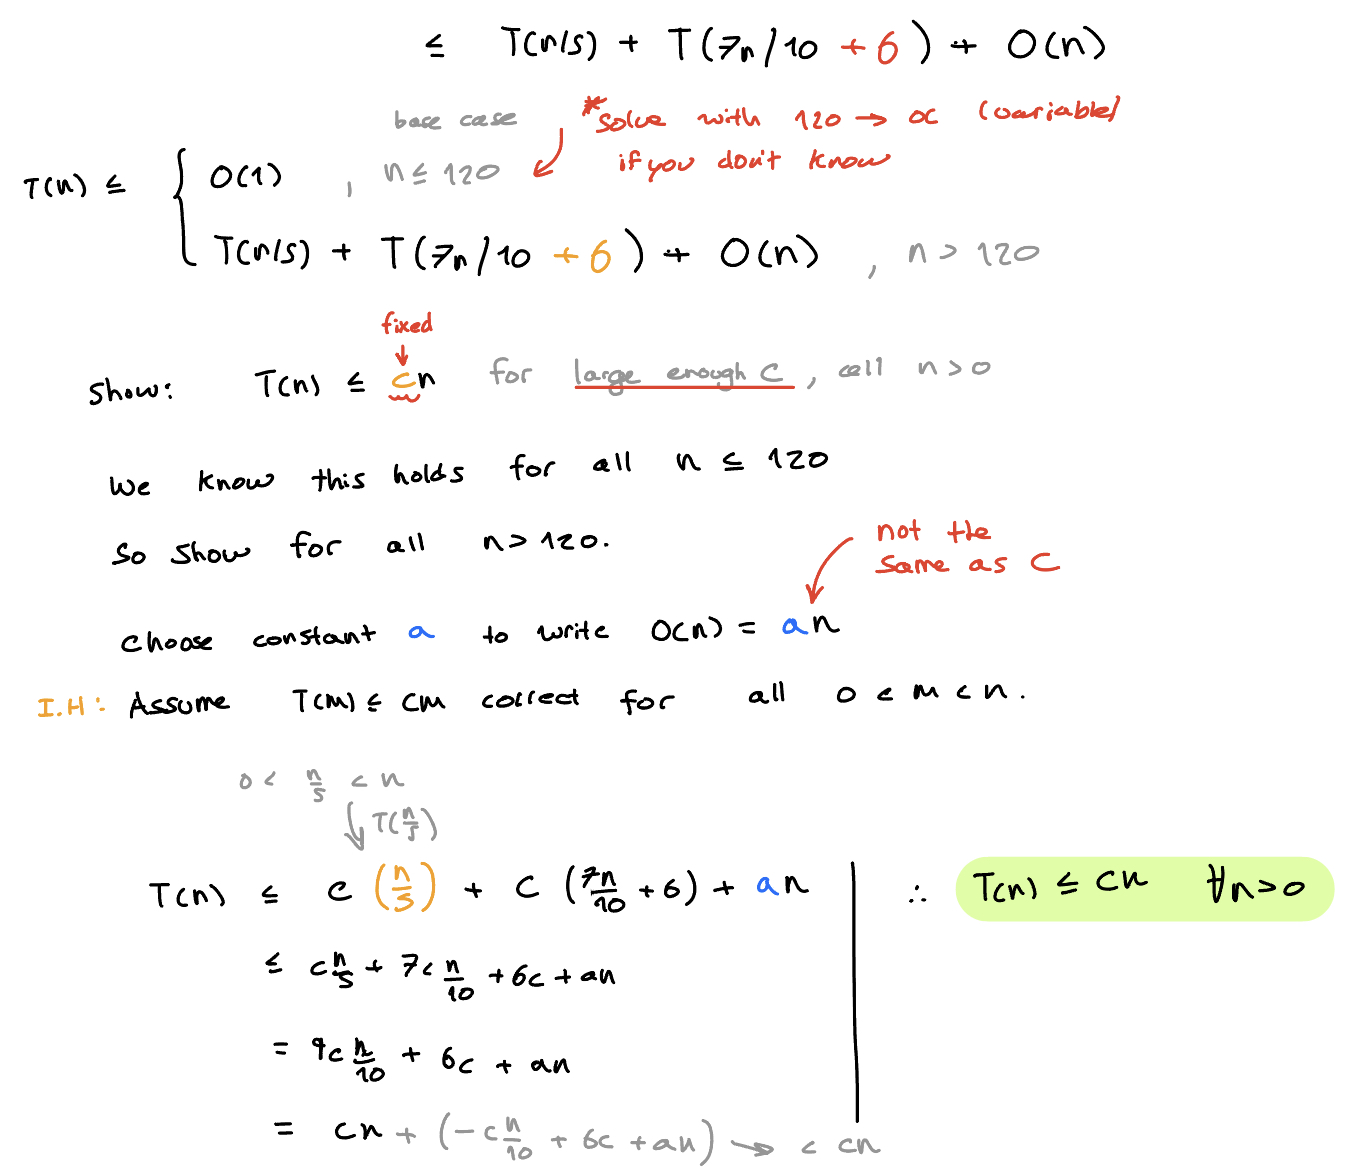 ≤ T(n/5) + T(7n/10 + 6) + O(n)
base case
*Solve with 120 → α (variable)
if you don't know
T(n) ≤ { O(1) , n ≤ 120
T(n/5) + T(7n/10 + 6) + O(n) , n > 120
fixed
↓
Show: T(n) ≤ cn for large enough C, all n > 0
We know this holds for all n ≤ 120
So show for all n > 120.
not the
same as C
Choose constant a to write O(n) = an
I.H: Assume T(m) ≤ cm correct for all 0 < m < n.
0 < n/5 < n
↓ T(n/5)
T(n) ≤ c (n/5) + c (7n/10 + 6) + an
∴ T(n) ≤ cn ∀n>0
≤ c n/5 + 7c n/10 + 6c + an
= 9c n/10 + 6c + an
= cn + (-c n/10 + 6c + an) → < cn